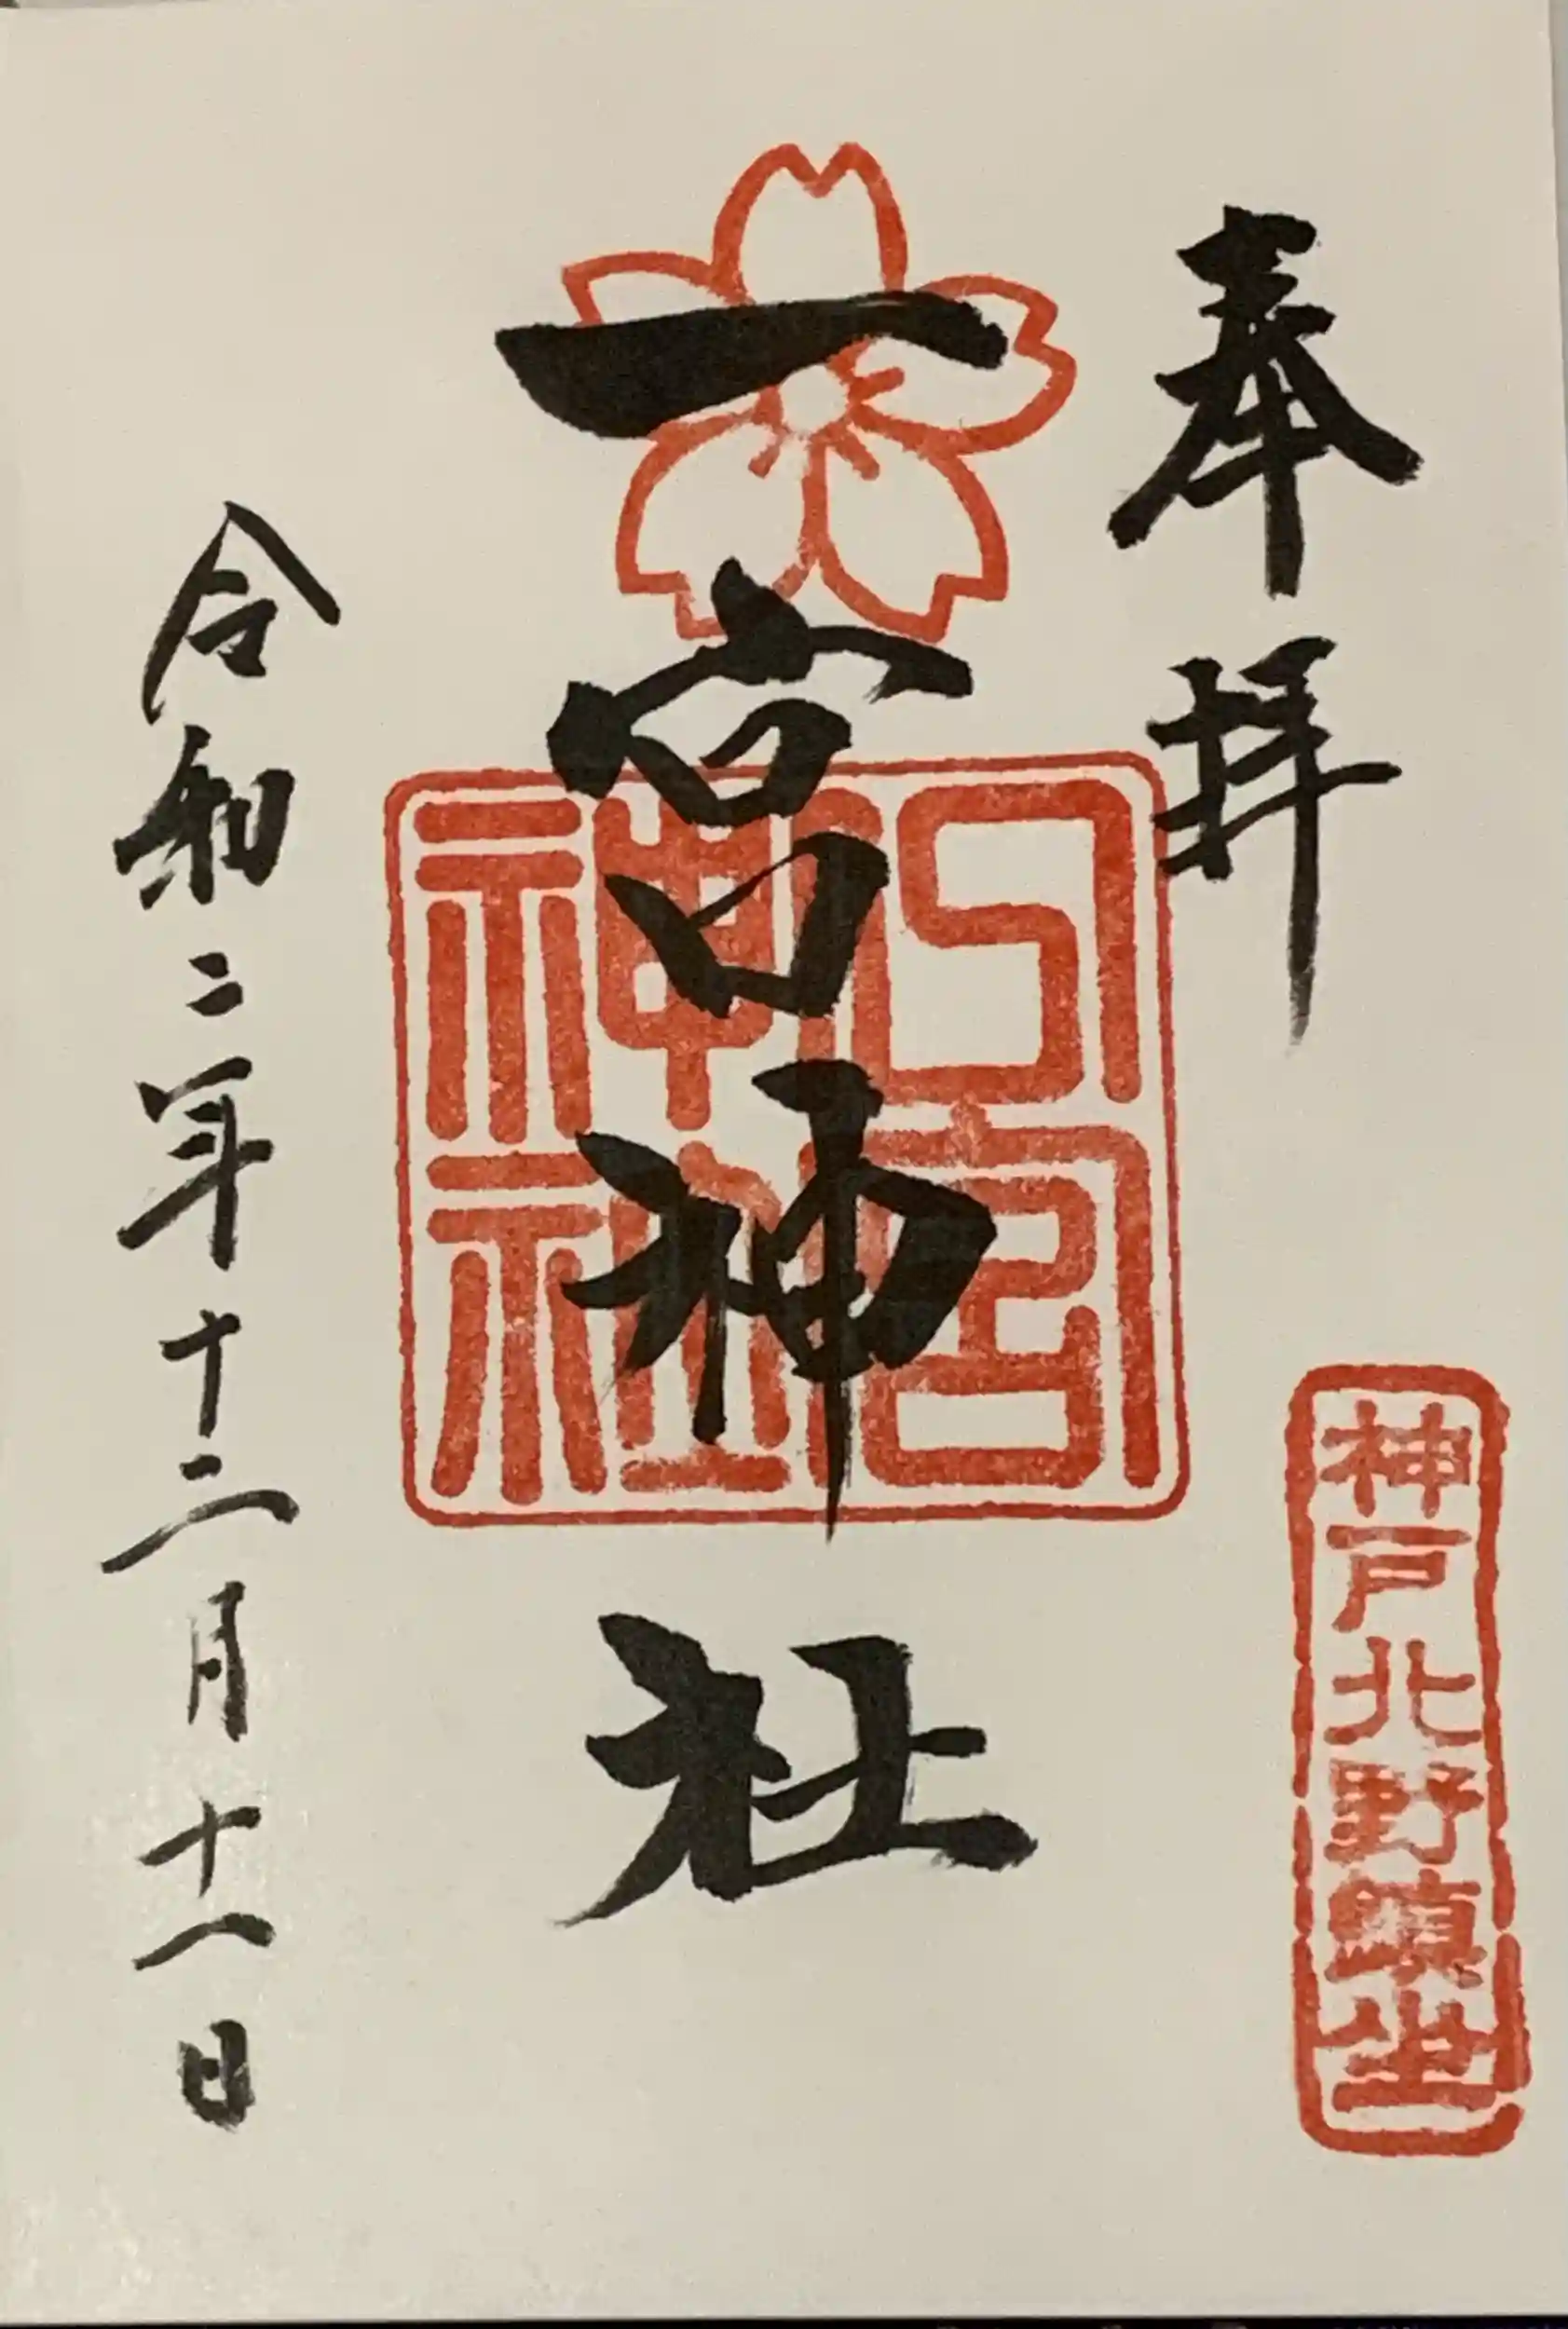 奉拝
神戸北野鎮坐
一宮神社
弌宮神社
令和二年十二月十八日